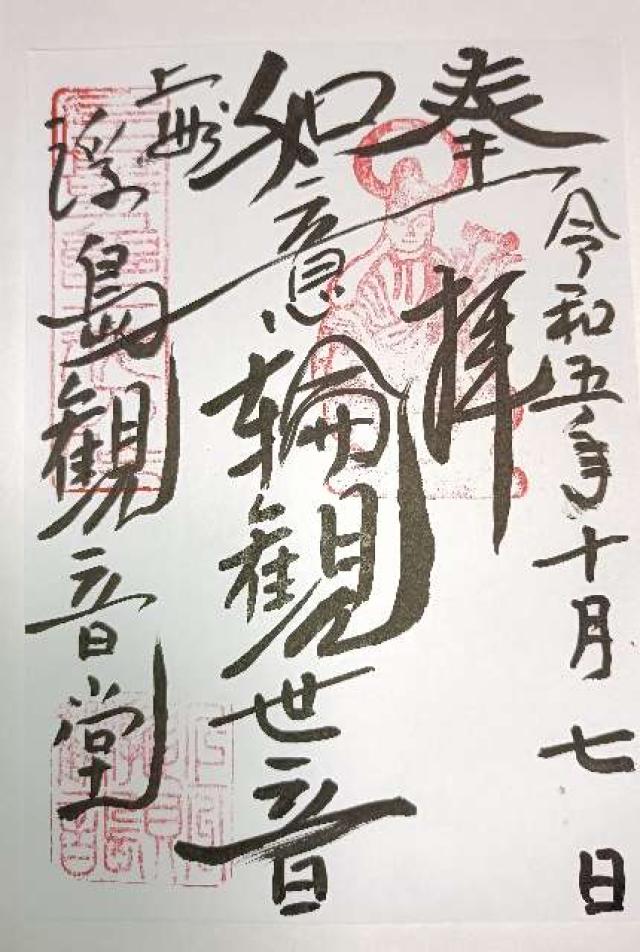 令和五年十月七日
奉拝
如意輪観世音
浮島観音堂